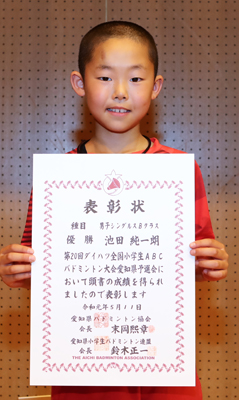 表彰状
種目 男子シングルスBクラス
優勝 池田 純一朗
第20回ダイハツ全国小学生ABC
バドミントン大会愛知県予選会に
おいて頭書の成績を得られ
ましたので表彰します
令和元年5月11日
愛知県バドミントン協会
会長 末岡熙章
愛知県小学生バドミントン連盟
会長 鈴木正一
THE AICHI BADMINTON ASSOCIATION